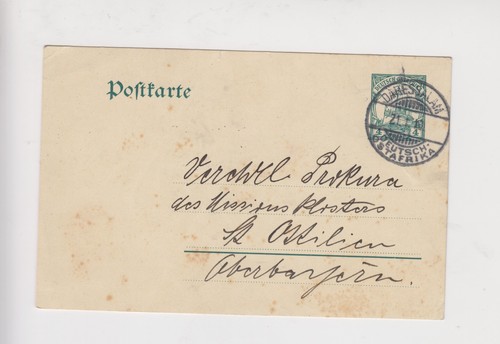 Postkarte
DARESSALAM
DEUTSCH-
OSTAFRIKA
Verehrl. Prokura
des Missionsklosters
St. Ottilien
Oberbayern.